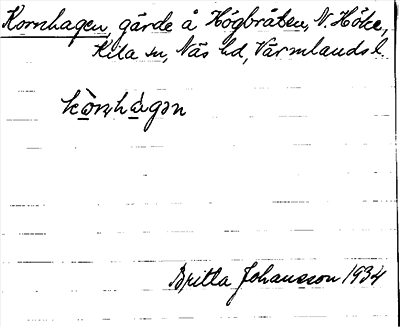 Kornhagen, gärde å Högbråten, N. Höke,
Kila sn, Näs hd, Värmlands l.
kòrn̥hàgən
Britta Johansson 1934